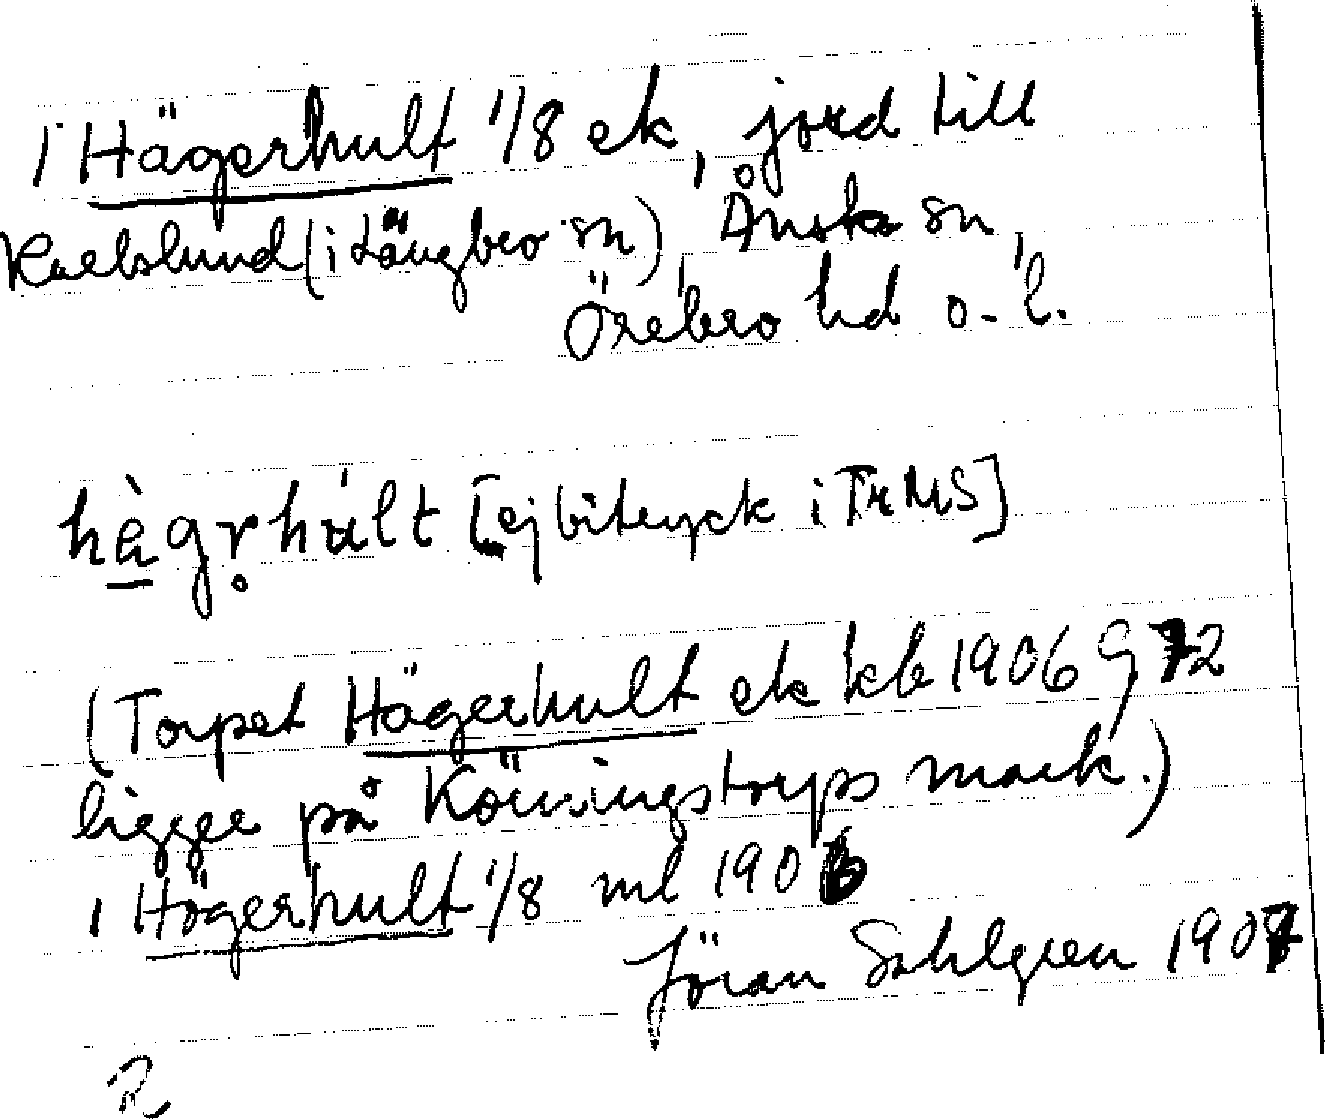 1 Hägerhult 1/8 ek, jord till
Karlslund (i Längbro sn), Ånsta sn,
Örebro hd o. l.
hàgr̥húlt [ej bitryck i TrMS]
(Torpet Hägerhult ek kb 1906 G 72
ligger på Körningstorps mark.)
1 Högerhult 1/8 ml 1906
Jöran Sahlgren 1907